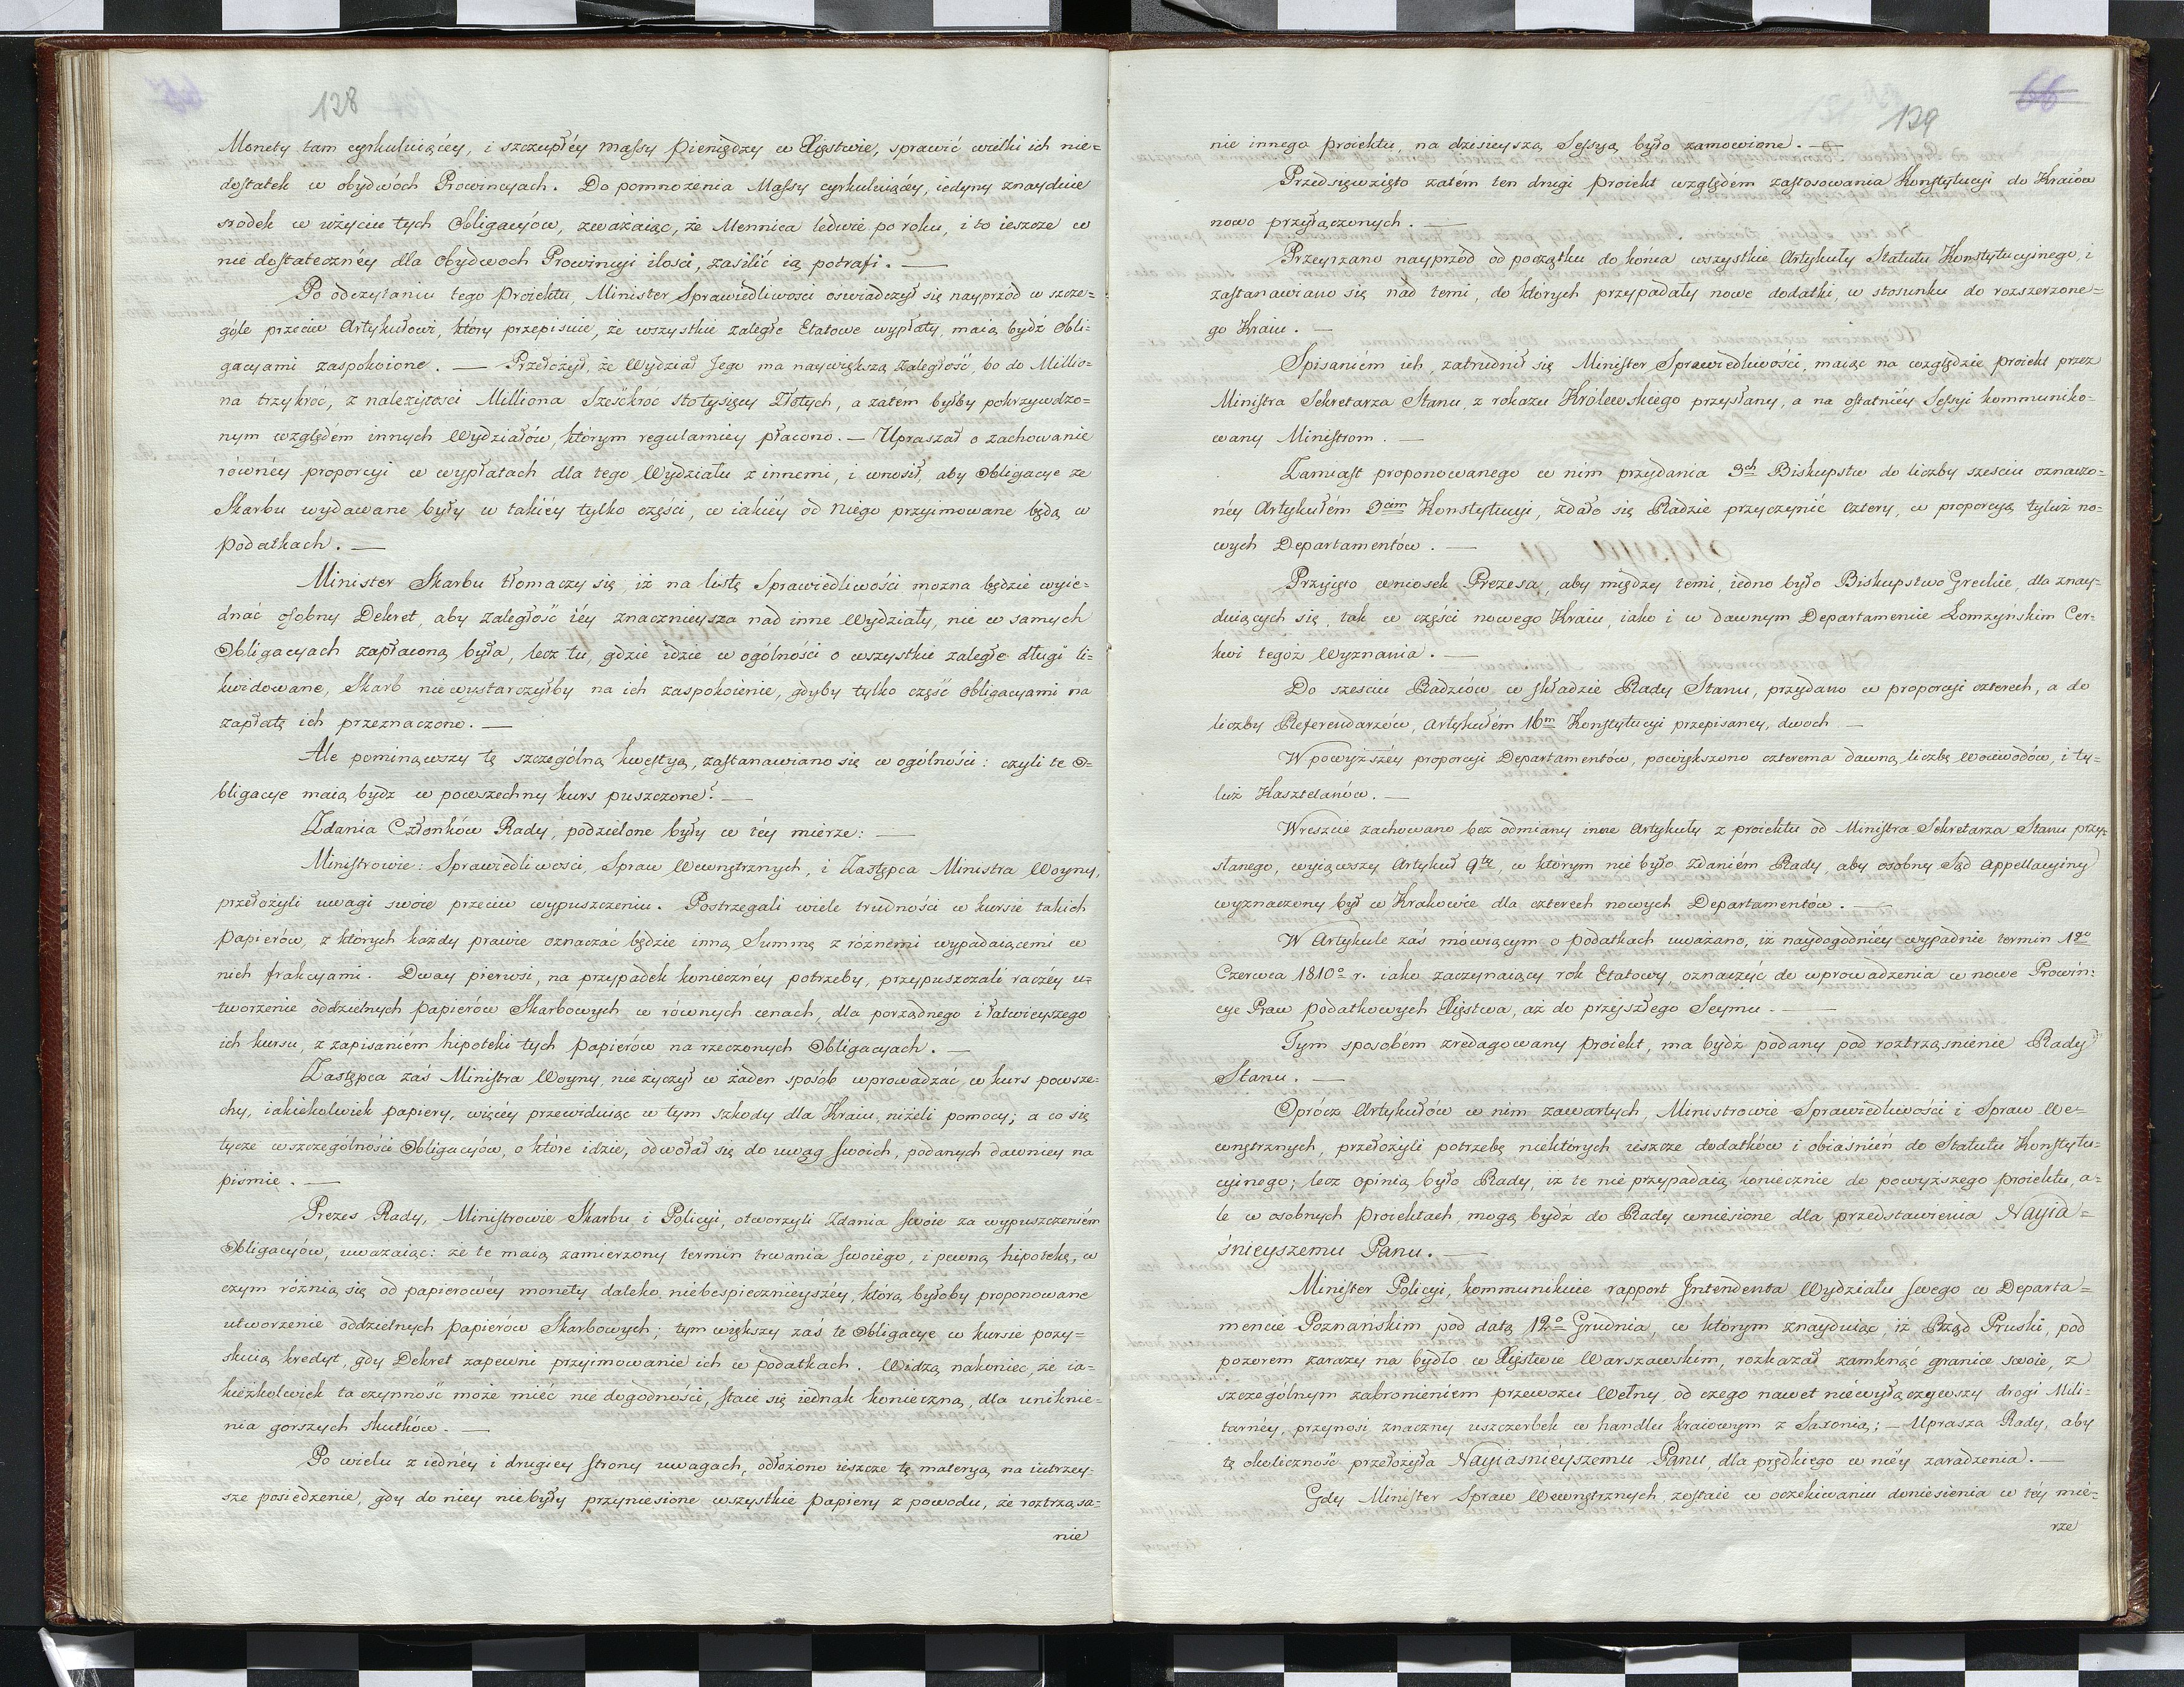 128
Monety tam cyrkuluiącéy, i szczupłéy Massy Pieniędzy w Xięstwie, sprawić wielki ich nie=
dostatek w obydwóch Prowincyach. Do pomnożenia Massy cyrkuluiącéy, iedyny znayduie
srodek w użyciu tych Obligacyów, zważaiąc, że Mennica ledwie po roku, i to ieszcze w
nie dostatecznéy dla obydwoch Prowincyi ilości, zasilić ią potrafi. —
Po odczytaniu tego Proiektu, Minister Sprawiedliwosci oswiadczył się nayprzód w szcze=
góle przeciw Artykułowi, który przepisuie, że wszystkie zaległe Etatowe wypłaty, maią bydź Obli=
gacyami zaspokoione. — Przełożył, że Wydział Jego ma naywiększą zaległość, bo do Millio=
na trzykroć, z należytosci Milliona Sześćkroć stotysięcy Złotych, a zatém byłby pokrzywdzo=
nym względém innych Wydziałów, którym regularniey płacono. — Upraszał o zachowanie
równéy proporcyi w wypłatach dla tego Wydziału z innemi, i wnosił, aby Obligacye ze
Skarbu wydawane były w takiéy tylko części, w iakiéy od Niego przyimowane będą w
podatkach. —
Minister Skarbu tłomaczy się, iż na listę Sprawiedliwości mozna będzie wyie=
dnać osobny Dekret, aby zaległość iéy znacznieysza nad inne Wydziały, nie w samych
Obligacyach zapłaconą była, lecz tu, gdzie idzie w ogólności o wszystkie zaległe długi li=
kwidowane, Skarb niewystarczyłby na ich zaspokoienie, gdyby tylko część Obligacyami na
zapłatę ich przeznaczono. —
Ale pominąwszy tę szczególną kwestyą, zastanawiano się w ogólności: czyli te O=
bligacye maią bydz w powszechny kurs puszczone? —
Zdania Członków Rady, podzielone były w téy mierze: —
Ministrowie: Sprawiedliwosci, Spraw Wewnętrznych, i Zastępca Ministra Woyny,
przełożyli uwagi swoie przeciw wypuszczeniu. Postrzegali wiele trudności w kursie takich
Papierów, z których kazdy prawie oznaczać będzie inną Summę z różnemi wypadaiącemi w
nich frakcyami. Dway pierwsi, na przypadek koniecznéy potrzeby, przypuszczali raczéy u=
tworzenie oddzielnych Papierów Skarbowych w równych cenach, dla porządnego i łatwieyszego
ich kursu, z zapisaniem hipoteki tych Papierów na rzeczonych Obligacyach. —
Zastępca zaś Ministra Woyny, nie życzył w żaden sposób wprowadzać w kurs powsze=
chy, iakiekolwiek papiery, więcéy przewiduiąc w tym szkody dla Kraiu, niżeli pomocy; a co się
tycze wszczególności Obligacyów, o które idzie, odwołał się do uwag swoich, podanych dawniey na
pismie. —
Prezes Rady, Ministrowie Skarbu i Policyi, otworzyli Zdania swoie za wypuszczeniém
Obligacyów, uwazaiąc: że te maią zamierzony termin trwania swoiego, i pewną hipotekę, w
czym różnią się od papierowéy monety daleko niebespiecznieyszéy, którą byłoby proponowane
utworzenie oddzielnych papierów Skarbowych; tym większy zaś te Obligacye w kursie pozy=
skuią kredyt, gdy Dekret zapewni przyimowanie ich w podatkach. Widzą nakoniec, że ia=
kieżkolwiek ta czynność może mieć nie dogodności, staie się iednak konieczną, dla uniknie=
nia gorszych skutków. —
Po wielu z iednéy i drugiey strony uwagach, odłożono ieszcze tę materyą na iutrzey=
sze posiedzenie, gdy do niey niebyły przyniesione wszystkie papiery z powodu, że roztrząsa=
nie
66
129
nie innego proiektu, na dzisieyszą Sessyą było zamowione. —
Przedsięwzięto zatém ten drugi Proiekt względém zastosowania Konstytucyi do Kraiów
nowo przyłączonych. —
Przeyrzano nayprzód od początku do końca wszystkie Artykuły Statutu Konstytucyinego, i
zastanawiano się nad temi, do których przypadały nowe dodatki, w stosunku do rozszerzone=
go Kraiu. —
Spisaniém ich, zatrudnił się Minister Sprawiedliwości, maiąc na względzie proiekt przez
Ministra Sekretarza Stanu, z rokazu Królewskiego przysłany, a na ostatniéy Sessyi kommuniko=
wany Ministrom. —
Zamiast proponowanego w nim przydania 3ch Biskupstw do liczby szesciu oznaczo=
néy Artykułém 3cim Konstytucyi, zdało się Radzie przyczynić cztery, w proporcyą tyluż no=
wych Departamentów. —
Przyięto wniosek Prezesa, aby między temi, iedno było Biskupstwo Greckie, dla znay=
duiących się, tak w części nowego Kraiu, iako i w dawnym Departamencie Łomżyńskim Cer=
kwi tegoż Wyznania. —
Do szesciu Radzców w składzie Rady Stanu, przydano w proporcyi czterech, a do
liczby Referendarzów, Artykułém 16m Konstytucyi przepisaney, dwoch. —
W powyższéy proporcyi Departamentów, powiększono czterema dawną liczbę Woiewodów, i ty=
luż Kasztelanów. —
Wreszcie zachowano bez odmiany inne Artykuły z proiektu od Ministra Sekretarza Stanu przy=
słanego, wyiąwszy Artykuł 9ty, w którym nie było zdaniém Rady, aby osobny Sąd Appellacyiny
wyznaczony był w Krakowie dla czterech nowych Departamentów. —
W Artykule zaś mówiącym o podatkach uważano, iż naydogodniéy wypadnie termin 1go
Czerwca 1810o r. iako zaczynaiący rok Etatowy, oznaczyć do wprowadzenia w nowe Prowin=
cye Praw podatkowych Xięstwa, aż do przyszłego Seymu. —
Tym sposobém zredagowany proiekt, ma bydź podany pod roztrząsnienie Rady
Stanu. —
Oprócz Artykułów w nim zawartych, Ministrowie Sprawiedliwości i Spraw We=
wnętrznych, przełożyli potrzebę niektórych ieszcze dodatków i obiaśnień do Statutu Konstytu=
cyinego; lecz opinią było Rady, iż te nie przypadaią koniecznie do powyższego proiektu, a=
le w osobnych Proiektach, mogą bydź do Rady wniesione dla przedstawienia Nayia=
śnieyszemu Panu. —
Minister Policyi, kommunikuie rapport Intendenta Wydziału swego w Departa=
mencie Poznańskim pod datą 12o Grudnia, w którym znayduiąc, iż Rząd Pruski, pod
pozorem zarazy na bydło w Xięstwie Warszawskim, rozkazał zamknąć granice swoie, z
szczególnym zabronieniem przewozu Wełny, od czego nawet niewyłączywszy drogi Mili=
tarnéy, przynosi znaczny uszczerbek w handlu kraiowym z Saxonią; — Uprasza Rady, aby
tę okoliczność przełożyła Nayiaśnieyszemu Panu, dla prędkiego w niéy zaradzenia. —
Gdy Minister Spraw Wewnętrznych, zostaie w oczekiwaniu doniesienia w téy mie=
rze